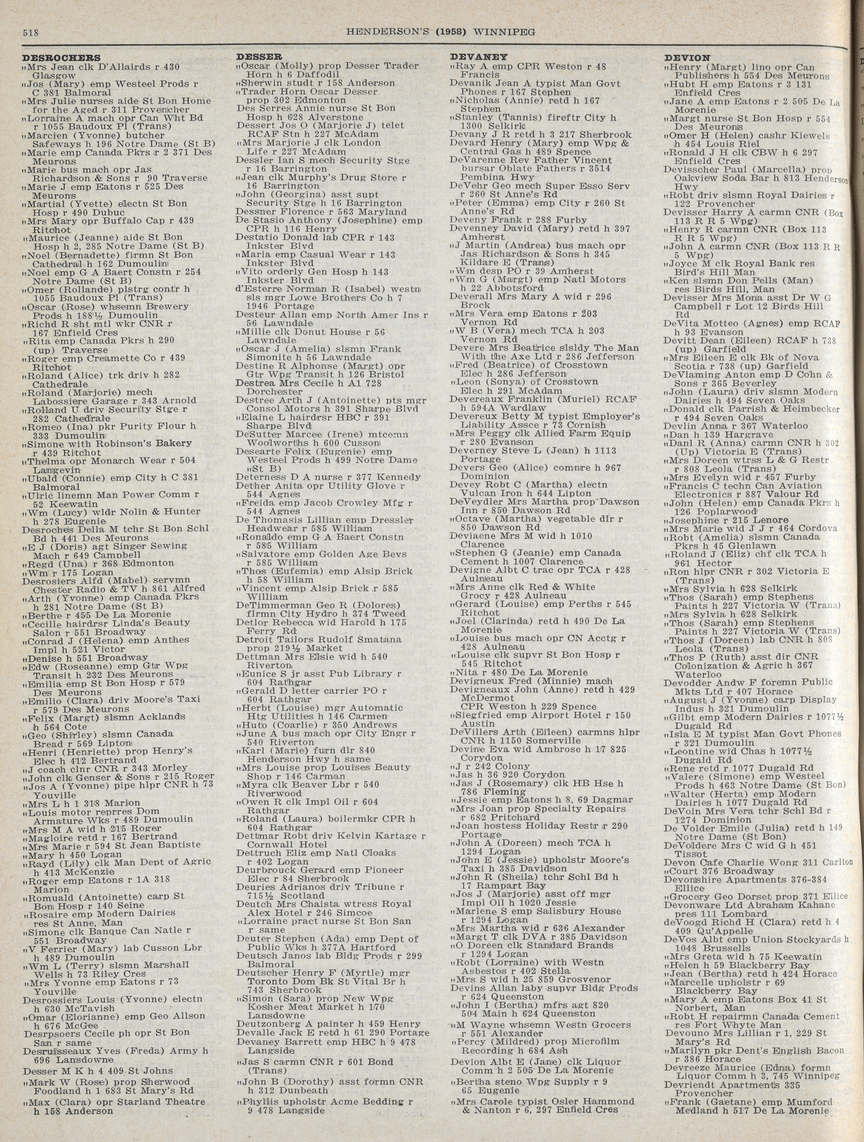 518
HENDERSON'S (1958) WINNIPEG
DESROCHERS
"Mrs Jean clk D'Allairds r 430
Glasgow
"Jos (Mary) emp Westeel Prods r
C 381 Balmoral
"Mrs Julie nurses aide St Bon Home
for the Aged r 311 Provencher
"Lorraine A mach opr Can Wht Bd
r 1055 Baudoux Pl (Trans)
"Marcien (Yvonne) butcher
Safeways h 196 Notre Dame (St B)
"Marie emp Canada Pkrs r 2 371 Des
Meurons
"Marie bus mach opr Jas
Richardson & Sons r 90 Traverse
"Marie J emp Eatons r 525 Des
Meurons
"Martial (Yvette) electn St Bon
Hosp r 490 Dubuc
"Mrs Mary opr Buffalo Cap r 439
Ritchot
"Maurice (Jeanne) aide St Bon
Hosp h 2, 285 Notre Dame (St B)
"Noel (Bernadette) firmn St Bon
Cathedral h 162 Dumoulin
"Noel emp G A Baert Constn r 254
Notre Dame (St B)
"Omer (Rollande) plstrg contr h
1055 Baudoux Pl (Trans)
"Oscar (Rose) whsemn Brewery
Prods h 188½ Dumoulin
"Richd R sht mtl wkr CNR r
167 Enfield Cres
"Rita emp Canada Pkrs h 290
(up) Traverse
"Roger emp Creamette Co r 439
Ritchot
"Roland (Alice) trk driv h 282
Cathedrale
"Roland (Marjorie) mech
Labossiere Garage r 343 Arnold
"Rolland U driv Security Stge r
282 Cathedrale
"Romeo (Ina) pkr Purity Flour h
333 Dumoulin
"Simone with Robinson's Bakery
r 439 Ritchot
"Thelma opr Monarch Wear r 504
Langevin
"Ubald (Connie) emp City h C 381
Balmoral
"Ulric linemn Man Power Comm r
52 Keewatin
"Wm (Lucy) wldr Nolin & Hunter
h 278 Eugenie
Desroches Della M tchr St Bon Schl
Bd h 441 Des Meurons
"E J (Doris) agt Singer Sewing
Mach r 649 Campbell
"Regd (Una) r 368 Edmonton
"Wm r 175 Logan
Desrosiers Alfd (Mabel) servmn
Chester Radio & TV h 861 Alfred
"Arth (Yvonne) emp Canada Pkrs
h 281 Notre Dame (St B)
"Berthe r 455 De La Morenie
"Cecille hairdrsr Linda's Beauty
Salon r 551 Broadway
"Conrad J (Helena) emp Anthes
Impl h 521 Victor
"Denise h 551 Broadway
"Edw (Roseanne) emp Gtr Wpg
Transit h 232 Des Meurons
"Emilia emp St Bon Hosp r 579
Des Meurons
"Emilio (Clara) driv Moore's Taxi
r 579 Des Meurons
"Felix (Margt) slsmn Acklands
h 564 Cote
"Geo (Shirley) slsmn Canada
Bread r 569 Lipton
"Henri (Henriette) prop Henry's
Elec h 412 Bertrand
"J coach clnr CNR r 343 Morley
"John clk Genser & Sons r 215 Roger
"Jos A (Yvonne) pipe hlpr CNR h 73
Youville
"Mrs L h 1 318 Marion
"Louis motor reprres Dom
Armature Wks r 489 Dumoulin
"Mrs M A wid h 215 Roger
"Magloire retd r 167 Bertrand
"Mrs Marie r 594 St Jean Baptiste
"Mary h 450 Logan
"Rayd (Lily) clk Man Dept of Agric
h 413 McKenzie
"Roger emp Eatons r 1A 318
Marion
"Romuald (Antoinette) carp St
Bon Hosp r 140 Seine
"Rosaire emp Modern Dairies
res St Anne, Man
"Simone clk Banque Can Natle r
551 Broadway
"V Ferrier (Mary) lab Cusson Lbr
h 489 Dumoulin
"Wm L (Terry) slsmn Marshall
Wells h 73 Riley Cres
"Mrs Yvonne emp Eatons r 73
Youville
Desrossiers Louis (Yvonne) electn
h 630 McTavish
"Omar (Elorianne) emp Geo Allson
h 676 McGee
Desrpsoers Cecile ph opr St Bon
San r same
Desruisseaux Yves (Freda) Army h
696 Lansdowne
Desser M K h 4 409 St Johns
"Mark W (Rose) prop Sherwood
Foodland h 1 683 St Mary's Rd
"Max (Clara) opr Starland Theatre
h 158 Anderson
DESSER
"Oscar (Molly) prop Desser Trader
Horn h 6 Daffodil
"Sherwin studt r 158 Anderson
"Trader Horn Oscar Desser
prop 302 Edmonton
Des Serres Annie nurse St Bon
Hosp h 628 Alverstone
Dessert Jos O (Marjorie J) telet
RCAF Stn h 227 McAdam
"Mrs Marjorie J clk London
Life r 227 McAdam
Dessler Ian S mech Security Stge
r 16 Barrington
"Jean clk Murphy's Drug Store r
16 Barrington
"John (Georgina) asst supt
Security Stge h 16 Barrington
Dessner Florence r 563 Maryland
De Stasio Anthony (Josephine) emp
CPR h 116 Henry
Destatio Donald lab CPR r 143
Inkster Blvd
"Maria emp Casual Wear r 143
Inkster Blvd
"Vito orderly Gen Hosp h 143
Inkster Blvd
d'Esterre Norman R (Isabel) westn
sls mgr Lowe Brothers Co h 7
1946 Portage
Desteur Allan emp North Amer Ins r
56 Lawndale
"Millie clk Donut House r 56
Lawndale
"Oscar J (Amelia) slsmn Frank
Simonite h 56 Lawndale
Destine R Alphonse (Margt) opr
Gtr Wpg Transit h 126 Bristol
Destrea Mrs Cecile h A1 728
Dorchester
Destree Arth J (Antoinette) pts mgr
Consol Motors h 391 Sharpe Blvd
"Elaine L hairdrsr HBC r 391
Sharpe Blvd
DeSutter Marcee (Irene) mtcemn
Woolworths h 600 Cusson
Desearte Felix (Eugenie) emp
Westeel Prods h 499 Notre Dame
"St B)
Deterness D A nurse r 377 Kennedy
Dether Anita opr Utility Glove r
544 Agnes
"Freida emp Jacob Crowley Mfg r
544 Agnes
De Thomasis Lillian emp Dressler
Headwear r 585 William
"Ronaldo emp G A Baert Constn
r 585 William
"Salvatore emp Golden Age Bevs
r 585 William
"Thos (Eufemia) emp Alsip Brick
h 58 William
"Vincent emp Alsip Brick r 585
William
DeTimmerman Geo R (Dolores)
firmn City Hydro h 374 Tweed
Detlor Rebecca wid Harold h 175
Ferry Rd
Detroit Tailors Rudolf Smatana
prop 219½ Market
Dettman Mrs Elsie wid h 540
Riverton
"Eunice S jr asst Pub Library r
604 Rathgar
"Gerald D letter carrier PO r
604 Rathgar
"Herbt (Louise) mgr Automatic
Htg Utilities h 146 Carmen
"Huto (Coarlie) r 350 Andrews
"June A bus mach opr City Engr r
540 Riverton
"Karl (Marie) furn dlr 840
Henderson Hwy h same
"Mrs Louise prop Louises Beauty
Shop r 146 Carman
"Myra clk Beaver Lbr r 540
Riverwood
"Owen R clk Impl Oil r 604
Rathgar
"Roland (Laura) boilermkr CPR h
604 Rathgar
Dettmar Robt driv Kelvin Kartage r
Cornwall Hotel
Dettruch Eliz emp Natl Cloaks
r 402 Logan
Deurbrouck Gerard emp Pioneer
Elec r 84 Sherbrook
Deuries Adrianos driv Tribune r
715½ Scotland
Deutch Mrs Chaista wtress Royal
Alex Hotel r 246 Simcoe
"Lorraine pract nurse St Bon San
r same
Deuter Stephen (Ada) emp Dept of
Public Wks h 377A Hartford
Deutsch Janos lab Bldg Prods r 299
Balmoral
Deutscher Henry F (Myrtle) mgr
Toronto Dom Bk St Vital Br h
743 Sherbrook
"Simon (Sara) prop New Wpg
Kosher Meat Market h 170
Lansdowne
Deutzonberg A painter h 459 Henry
Devalle Jack E retd h 61 290 Portage
Devaney Barrett emp HBC h 9 478
Langside
"Jas S carmn CNR r 601 Bond
(Trans)
"John B (Dorothy) asst formn CNR
h 312 Dunbeath
"Phyllis upholstr Acme Bedding r
9 478 Langside
DEVANEY
"Ray A emp CPR Weston r 48
Francis
Devanik Jean A typist Man Govt
Phones r 167 Stephen
"Nicholas (Annie) retd h 167
Stephen
"Stanley (Tannis) fireftr City h
1300 Selkirk
Devany J R retd h 3 217 Sherbrook
Devard Henry (Mary) emp Wpg &
Central Gas h 489 Spence
DeVarenne Rev Father Vincent
bursar Oblate Fathers r 3514
Pembina Hwy
DeVehr Geo mech Super Esso Serv
r 260 St Anne's Rd
"Peter (Emma) emp City r 260 St
Anne's Rd
Deveny Frank r 288 Furby
Devenney David (Mary) retd h 397
Amherst
"J Martin (Andrea) bus mach opr
Jas Richardson & Sons h 345
Kildare E (Trans)
"Wm desp PO r 39 Amherst
"Wm G (Margt) emp Natl Motors
h 22 Abbotsford
Deverall Mrs Mary A wid r 296
Brock
"Mrs Vera emp Eatons r 203
Vernon Rd
"W B (Vera) mech TCA h 203
Vernon Rd
Devere Mrs Beatrice slsldy The Man
With the Axe Ltd r 286 Jefferson
"Fred (Beatrice) of Crosstown
Elec h 286 Jefferson
"Leon (Sonya) of Crosstown
Elec h 291 McAdam
Devereaux Franklin (Muriel) RCAF
h 594A Wardlaw
Devereux Betty M typist Employer's
Liability Assce r 73 Cornish
"Mrs Peggy clk Allied Farm Equip
r 280 Evanson
Deverney Steve L (Jean) h 1113
Portage
Devers Geo (Alice) comnre h 967
Dominion
Devey Robt C (Martha) electn
Vulcan Iron h 644 Lipton
DeVeydler Mrs Martha prop Dawson
Inn r 850 Dawson Rd
"Octave (Martha) vegetable dlr r
850 Dawson Rd
Deviaene Mrs M wid h 1010
Clarence
"Stephen G (Jeanie) emp Canada
Cement h 1007 Clarence
Devigne Albt C trac opr TCA r 428
Aulneau
"Mrs Anne clk Red & White
Grocy r 428 Aulneau
"Gerard (Louise) emp Perths r 545
Ritchot
"Joel (Clarinda) retd h 490 De La
Morenie
"Louise bus mach opr CN Acctg r
428 Aulneau
"Louise clk supvr St Bon Hosp r
545 Ritchot
"Nita r 480 De La Morenie
Devigneux Fred (Minnie) mach
Devigneaux John (Anne) retd h 429
McDermot
CPR Weston h 229 Spence
"Siegfried emp Airport Hotel r 150
Austin
DeVillers Arth (Eileen) carmns hlpr
CNR h 1150 Somerville
Devine Eva wid Ambrose h 17 825
Corydon
"J r 242 Colony
"Jas h 36 920 Corydon
"Jas J (Rosemary) clk HB Hse h
786 Fleming
"Jessie emp Eatons h 8, 69 Dagmar
"Mrs Joan prop Specialty Repairs
r 682 Pritchard
"Joan hostess Holiday Restr r 290
Portage
"John A (Doreen) mech TCA h
1294 Logan
"John E (Jessie) upholstr Moore's
Taxi h 385 Davidson
"John R (Sheila) tchr Schl Bd h
17 Rampart Bay
"Jos J (Marjorie) asst off mgr
Impl Oil h 1020 Jessie
"Marlene S emp Salisbury House
r 1294 Logan
"Mrs Martha wid r 636 Alexander
"Margt T clk DVA r 385 Davidson
"O Doreen clk Standard Brands
r 1294 Logan
"Robt (Lorraine) with Westn
Asbestos r 402 Stella
"Mrs S wid h 25 859 Grosvenor
Devins Allan laby supvr Bldg Prods
r 624 Queenston
"John I (Bertha) mfrs agt 820
504 Main h 624 Queenston
"M Wayne whsemn Westn Grocers
r 551 Alexander
"Percy (Mildred) prop Microfilm
Recording h 684 Ash
Devion Albt E (Jane) clk Liquor
Comm h 2 505 De La Morenie
"Bertha steno Wpg Supply r 9
65 Eugenie
"Mrs Carole typist Osler Hammond
& Nanton r 6, 297 Enfield Cres
DEVION
"Henry (Margt) lino opr Can
Publishers h 554 Des Meurons
"Hubt H emp Eatons r 3 131
Enfield Cres
"Jane A emp Eatons r 2 505 De La
Morenie
"Margt nurse St Bon Hosp r 554
Des Meurons
"Omer H (Helen) cashr Kiewels
h 454 Louis Riel
"Ronald J H clk CBW h 6 297
Enfield Cres
Devisscher Paul (Marcella) prop
Oakview Soda Bar h 813 Henderson
Hwy
"Robt driv slsmn Royal Dairies r
122 Provencher
Devisser Harry A carmn CNR (Box
113 R R 5 Wpg)
"Henry R carmn CNR (Box 113
R R 5 Wpg)
"John A carmn CNR (Box 113 R R
5 Wpg)
"Joyce M clk Royal Bank res
Bird's Hill Man
"Ken slsmn Don Pells (Man)
res Birds Hill, Man
Devisser Mrs Mona asst Dr W G
Campbell r Lot 12 Birds Hill
Rd
DeVita Motteo (Agnes) emp RCAF
h 93 Evanson
Devitt Dean (Eileen) RCAF h 738
(up) Garfield
"Mrs Eilleen E clk Bk of Nova
Scotia r 738 (up) Garfield
DeVlaming Anton emp D Cohn &
Sons r 365 Beverley
"John (Laura) driv slsmn Modern
Dairies h 494 Seven Oaks
"Donald clk Parrish & Heimbecker
r 494 Seven Oaks
Devlin Anna r 367 Waterloo
"Dan h 139 Hargrave
"Danl R (Anna) carmn CNR h 302
(Up) Victoria E (Trans)
"Mrs Doreen wtrss L & G Restr
r 808 Leola (Trans)
"Mrs Evelyn wid r 457 Furby
"Francis C techn Can Aviation
Electronics r 887 Valour Rd
"John (Helen) emp Canada Pkrs h
126 Poplarwood
"Josephine r 215 Lenore
"Mrs Marie wid J J r 464 Cordova
"Robt (Amelia) slsmn Canada
Pkrs h 45 Glenlawn
"Roland J (Eliz) chf clk TCA h
961 Hector
"Ron hlpr CNR r 302 Victoria E
(Trans)
"Mrs Sylvia h 628 Selkirk
"Thos (Sarah) emp Stephens
Paints h 227 Victoria W (Trans)
"Mrs Sylvia h 628 Selkirk
"Thos (Sarah) emp Stephens
Paints h 227 Victoria W (Trans)
"Thos J (Doreen) lab CNR h 808
Leola (Trans)
"Thos P (Ruth) asst dir CNR
Colonization & Agric h 367
Waterloo
Devodder Andw F foremn Public
Mkts Ltd r 407 Horace
"August J (Yvonne) carp Display
Indus h 321 Dumoulin
"Gilbt emp Modern Dairies r 1077½
Dugald Rd
"Isla E M typist Man Govt Phones
r 321 Dumoulin
"Leontine wid Chas h 1077½
Dugald Rd
"Rene retd r 1077 Dugald Rd
"Valere (Simone) emp Westeel
Prods h 463 Notre Dame (St Bon)
"Walter (Herta) emp Modern
Dairies h 1077 Dugald Rd
DeVoin Mrs Vera tchr Schl Bd r
1274 Dominion
De Volder Emile (Julia) retd h 149
Notre Dame (St Bon)
DeVoldere Mrs C wid G h 451
Tissot
Devon Cafe Charlie Wong 311 Carlton
"Court 376 Broadway
Devonshire Apartments 376-384
Ellice
"Grocery Geo Dorset prop 371 Ellice
Devonware Ltd Abraham Kahane
pres 111 Lombard
deVoogd Richd H (Clara) retd h 4
409 Qu'Appelle
DeVos Albt emp Union Stockyards h
1048 Brussells
"Mrs Greta wid h 75 Keewatin
"Helen h 59 Blackberry Bay
"Jean (Bertha) retd h 424 Horace
"Marcelle upholstr r 69
Blackberry Bay
"Mary A emp Eatons Box 41 St
Norbert, Man
"Robt H repairmn Canada Cement
res Fort Whyte Man
Devouno Mrs Lillian r 1, 229 St
Mary's Rd
"Marilyn pkr Dent's English Bacon
r 386 Horace
Devreeze Maurice (Edna) formn
Liquor Comm h 3, 745 Winnipeg
Devriendt Apartments 335
Provencher
"Frank (Gaetane) emp Mumford
Medland h 517 De La Morenie